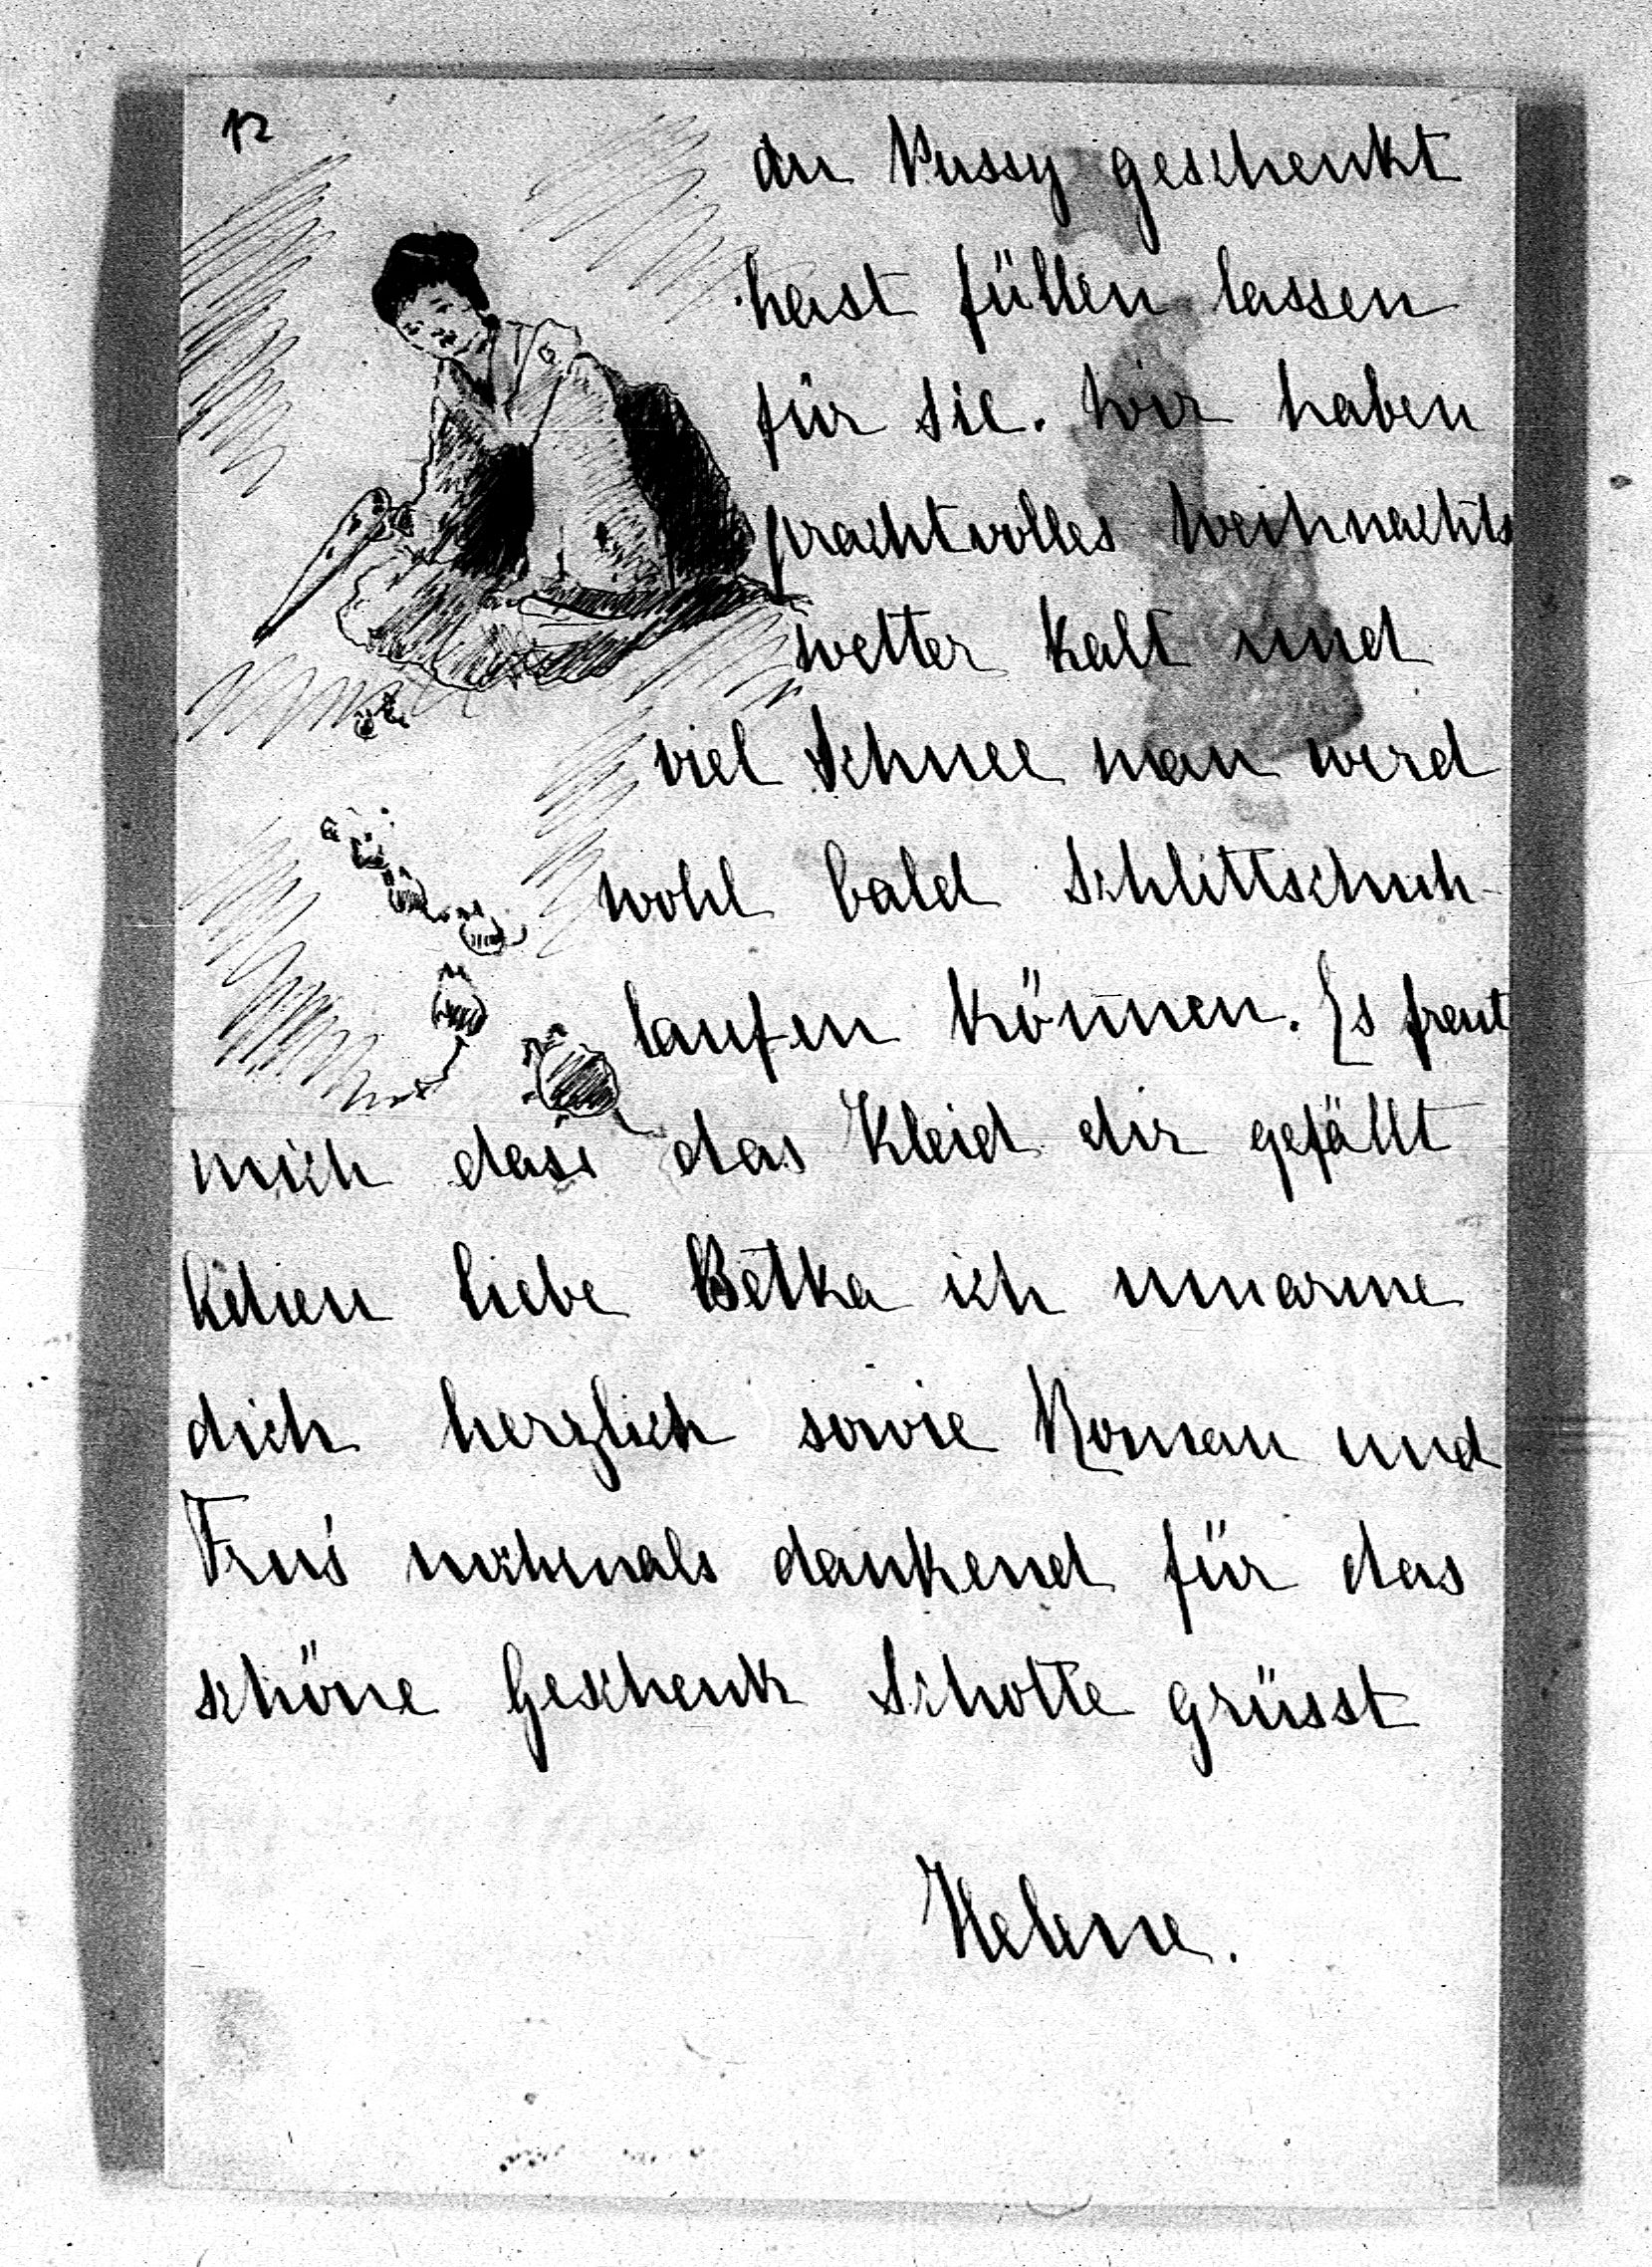 12
du Pussy geschenkt
hast füllen lassen
für sie. Wir haben
prachtvolles Weihnachts
wetter kalt und
viel Schnee man wird
wohl bald Schlittschuh-
laufen können. Es freut
mich dass das Kleid dir gefällt
liebe Betka ich umarme
dich herzlich sowie Roman und
nochmals dankend für das
schöne Geschenk Schotte grüsst
Helene.